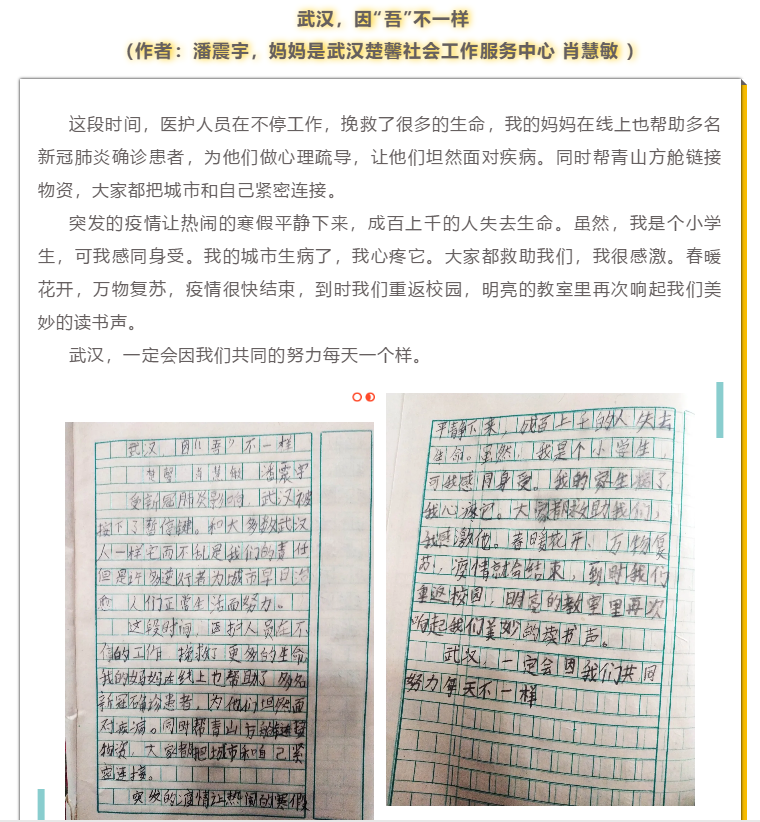 武汉，因“吾”不一样
（作者：潘震宇，妈妈是武汉楚馨社会工作服务中心 肖慧敏 ）
这段时间，医护人员在不停工作，挽救了很多的生命，我的妈妈在线上也帮助多名
新冠肺炎确诊患者，为他们做心理疏导，让他们坦然面对疾病。同时帮青山方舱链接
物资，大家都把城市和自己紧密连接。
突发的疫情让热闹的寒假平静下来，成百上千的人失去生命。虽然，我是个小学
生，可我感同身受。我的城市生病了，我心疼它。大家都救助我们，我很感激。春暖
花开，万物复苏，疫情很快结束，到时我们重返校园，明亮的教室里再次响起我们美
妙的读书声。
武汉，一定会因我们共同的努力每天一个样。
武汉，因“吾”不一样
楚馨 肖慧敏 潘震宇
受新冠肺炎影响，武汉被
按下了暂停键。和大多数武汉
人一样宅而不乱是我们的责任
但是许多逆行者为城市早日治
愈 人们正常生活而努力。
这段时间，医护人员在不
停的工作 挽救了更多的生命
我的妈妈在线上也帮助了多名
新冠确诊患者，为他们坦然面
对疾病。同时帮青山方舱链接
物资，大家都把城市和自己紧
密连接。
突发的疫情让热闹的寒假
平静下来，成百上千的人失去
生命。虽然，我是个小学生，
可我感同身受。我的家生病了
我心疼它。大家都救助我们，
我感激他。春暖花开，万物复
苏，疫情就会结束，到时我们
重返校园，明亮的教室里再次
响起我们美妙的读书声。
武汉，一定会因我们共同
努力每天不一样